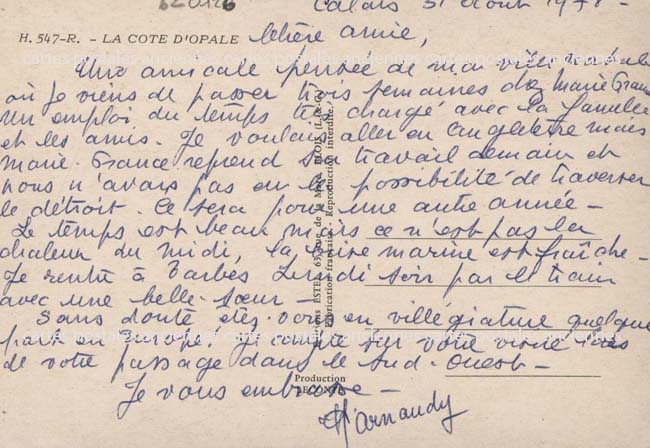 620126
Calais 31 Août 197
H. 547-R. - LA COTE D'OPALE
chère amie,
Une amicale pensée de ma ville natale
où je viens de passer trois semaines chez Marie-France
un emploi du temps très chargé avec la famille
et les amis. Je voulais aller en Angleterre mais
Marie-France reprend son travail demain et
nous n'avons pas eu la possibilité de traverser
le détroit. Ce sera pour une autre année -
Le temps est beau mais ce n'est pas la
chaleur du midi, la brise marine est fraîche -
Je rentre à Tarbes Lundi soir par le train
avec une belle-sœur -
Sans doute êtes-vous en villégiature quelque
part en Europe. Je compte sur votre visite lors
de votre passage dans le Sud-Ouest -
Je vous embrasse -
Arnaudy
Editions ESTEL
Fabrication française - Reproduction interdite
Production
LECONTE